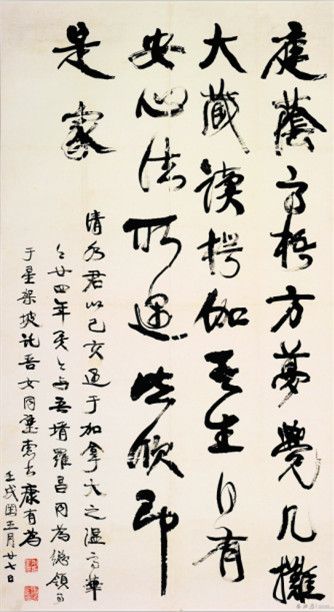 庭蔭高梧方夢覺几攤
大藏讀楞伽吾生自有
安心法所遇皆欣即
是家
清君以己亥遇于加拿大之温高華
今廿四年矣与吾壻羅昌同為總領事
于星架坡託吾女同璧索書康有為
壬戌閏五月廿七日